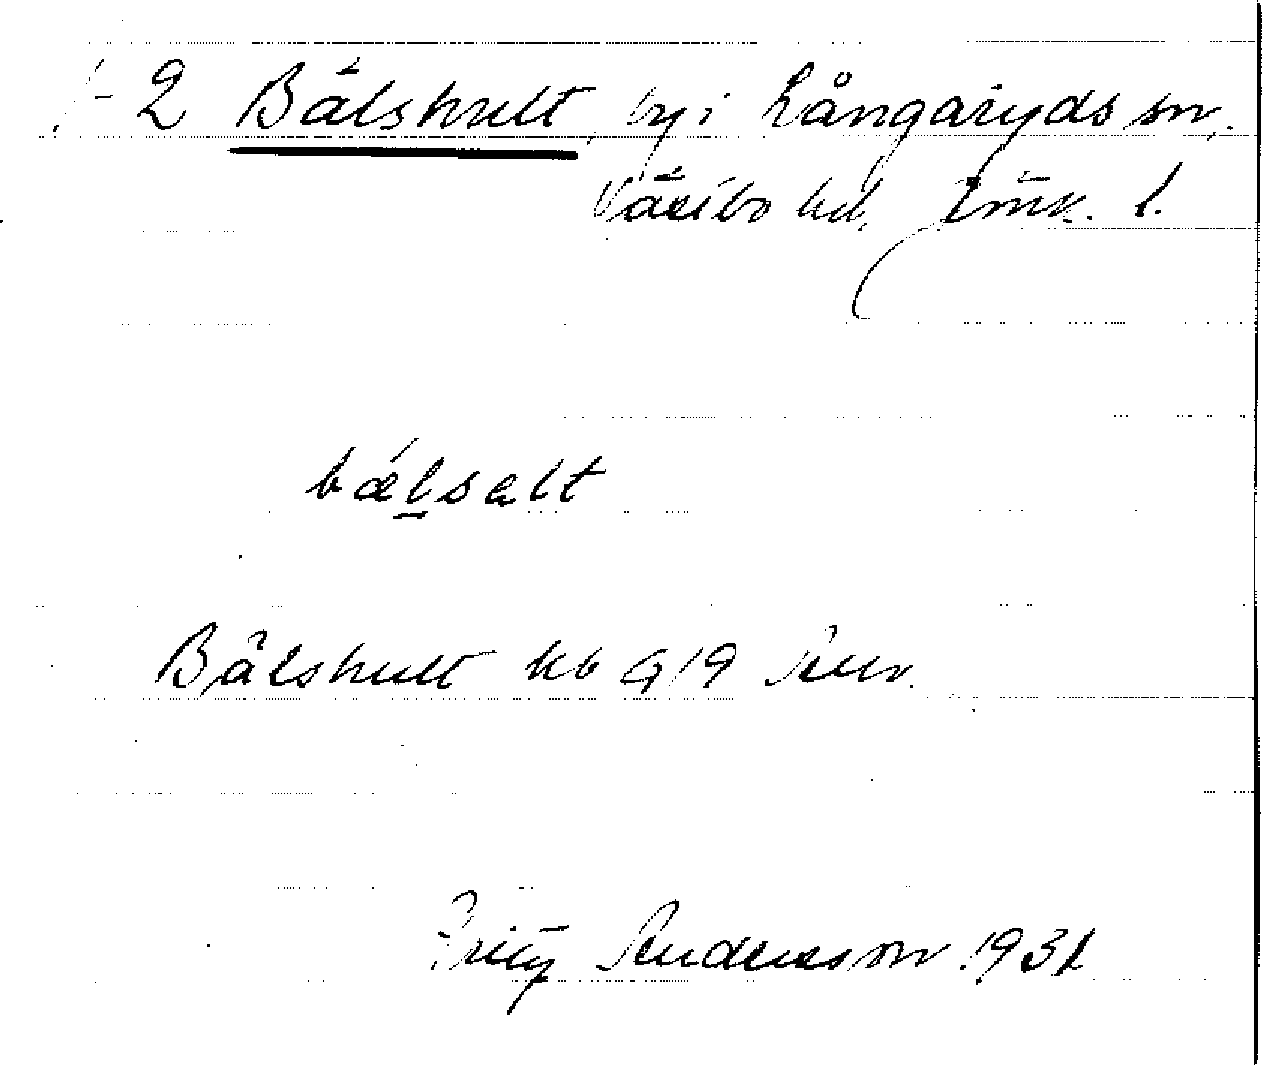 1-2 Bälshult, by i Långaryds sn,
Västbo hd, Jönk. l.
bǽlsalt
Bälshult kb G19 Anv.
Fritz Andersson 1931